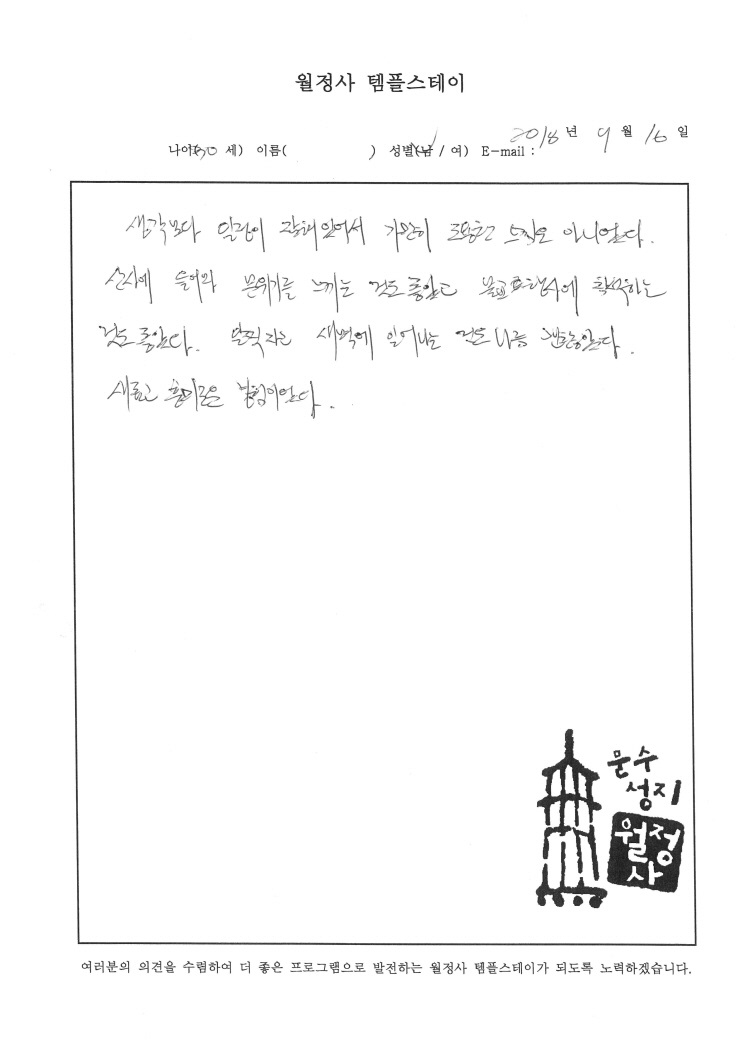 월정사 템플스테이
2018 년 9 월 16 일
나이(30 세) 이름( ) 성별(남 / 여) E-mail :
생각보다 일정이 잡혀있어서 가만히 조용한 느낌은 아니었다.
산사에 들어와 분위기를 느끼는 것도 좋았고 불교 에 참석하는
것도 좋았다. 일찍 자고 새벽에 일어나는 것도 나름 괜찮았다.
새롭고 흥미로운 경험이었다.
문수
성지
월정
사
여러분의 의견을 수렴하여 더 좋은 프로그램으로 발전하는 월정사 템플스테이가 되도록 노력하겠습니다.